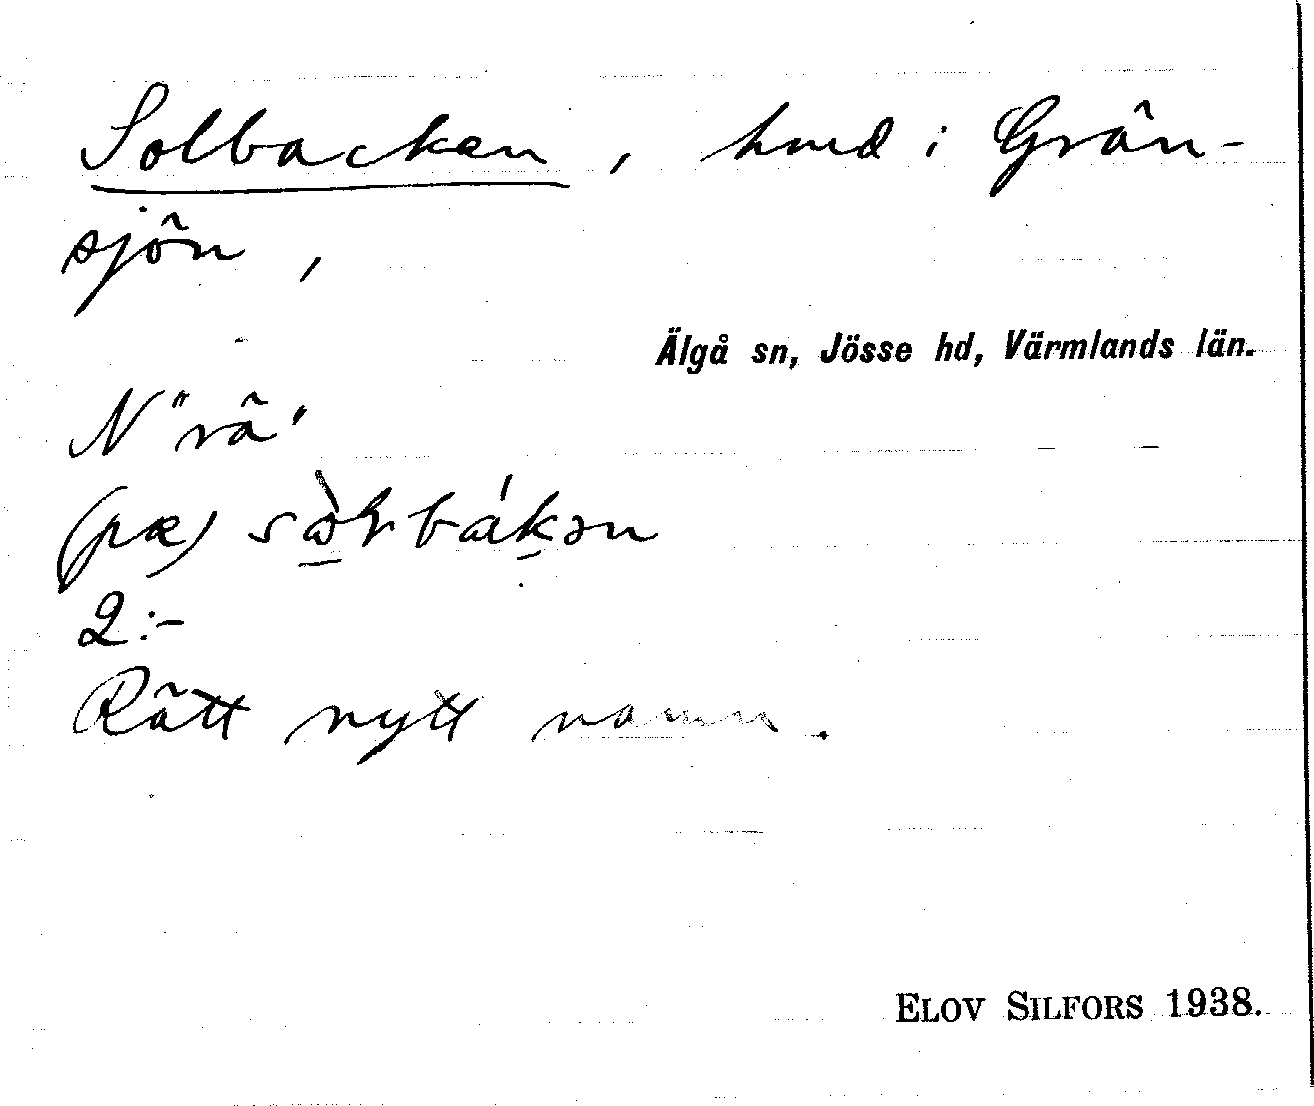 Solbacken, hmd i Grän-
sjön,
Älgå sn, Jösse hd, Värmlands län.
N "rä"
(pæ)
2:-
Rätt nytt namn.
ELOV SILFORS 1938.